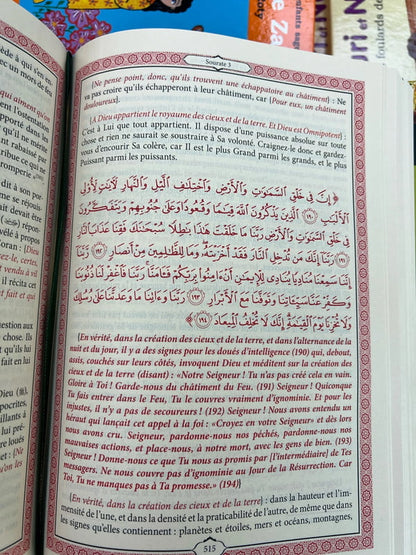 Sourate 3
{Ne pense point, donc, qu'ils trouvent une échappatoire au châtiment} : Ne
va pas croire qu'ils échapperont à leur châtiment, car {Pour eux, un châtiment
douloureux}.
{A Dieu appartient le royaume des cieux et de la terre. Et Dieu est Omnipotent} :
C'est à Lui que tout appartient. Il dispose d'une puissance absolue sur toute
chose et rien ne saurait se soustraire à Sa volonté. Craignez-le donc et gardez-
vous d'encourir Sa colère, car Il est le plus Grand parmi les grands, et le plus
Puissant parmi les puissants.
﴿ إِنَّ فِي خَلْقِ السَّمَٰوَٰتِ وَالْأَرْضِ وَاخْتِلَٰفِ الَّيْلِ وَالنَّهَارِ لَءَايَٰتٍ لِّأُو۟لِي
الْأَلْبَٰبِ ﴿١٩٠﴾ الَّذِينَ يَذْكُرُونَ اللَّهَ قِيَٰمًا وَقُعُودًا وَعَلَىٰ جُنُوبِهِمْ وَيَتَفَكَّرُونَ
فِي خَلْقِ السَّمَٰوَٰتِ وَالْأَرْضِ رَبَّنَا مَا خَلَقْتَ هَٰذَا بَٰطِلًا سُبْحَٰنَكَ فَقِنَا عَذَابَ
النَّارِ ﴿١٩١﴾ رَبَّنَا إِنَّكَ مَن تُدْخِلِ النَّارَ فَقَدْ أَخْزَيْتَهُۥ وَمَا لِلظَّٰلِمِينَ مِنْ أَنصَارٍ ﴿١٩٢﴾ رَّبَّنَا
إِنَّنَا سَمِعْنَا مُنَادِيًا يُنَادِي لِلْإِيمَٰنِ أَنْ ءَامِنُوا۟ بِرَبِّكُمْ فَـَٔامَنَّا رَبَّنَا فَاغْفِرْ لَنَا ذُنُوبَنَا
وَكَفِّرْ عَنَّا سَيِّـَٔاتِنَا وَتَوَفَّنَا مَعَ الْأَبْرَارِ ﴿١٩٣﴾ رَبَّنَا وَءَاتِنَا مَا وَعَدتَّنَا عَلَىٰ رُسُلِكَ
وَلَا تُخْزِنَا يَوْمَ الْقِيَٰمَةِ إِنَّكَ لَا تُخْلِفُ الْمِيعَادَ ﴿١٩٤﴾
{En vérité, dans la création des cieux et de la terre, et dans l'alternance de la
nuit et du jour, il y a des signes pour les doués d'intelligence (190) qui, debout,
assis, couchés sur leur côtés, invoquent Dieu et méditent sur la création des
cieux et de la terre (disant) : «Notre Seigneur ! Tu n'as pas créé cela en vain.
Gloire à Toi ! Garde-nous du châtiment du Feu. (191) Seigneur ! Quiconque
Tu fais entrer dans le Feu, Tu le couvres vraiment d'ignominie. Et pour les
injustes, il n'y a pas de secoureurs ! (192) Seigneur ! Nous avons entendu un
héraut qui lançait cet appel à la foi : «Croyez en votre Seigneur» et dès lors
nous avons cru. Seigneur, pardonne-nous nos péchés, pardonne-nous nos
mauvaises actions, et place-nous, à notre mort, avec les gens de bien. (193)
Seigneur ! Donne-nous ce que Tu nous as promis par [l'intermédiaire] de Tes
messagers. Ne nous couvre pas d'ignominie au Jour de la Résurrection. Car
Toi, Tu ne manques pas à Ta promesse.» (194)}
{En vérité, dans la création des cieux et de la terre} : dans la hauteur et l'im-
mensité de l'une, et dans la densité et la praticabilité de l'autre, de même que dans
les signes qu'elles contiennent : planètes et étoiles, mers et océans, montagnes,
515